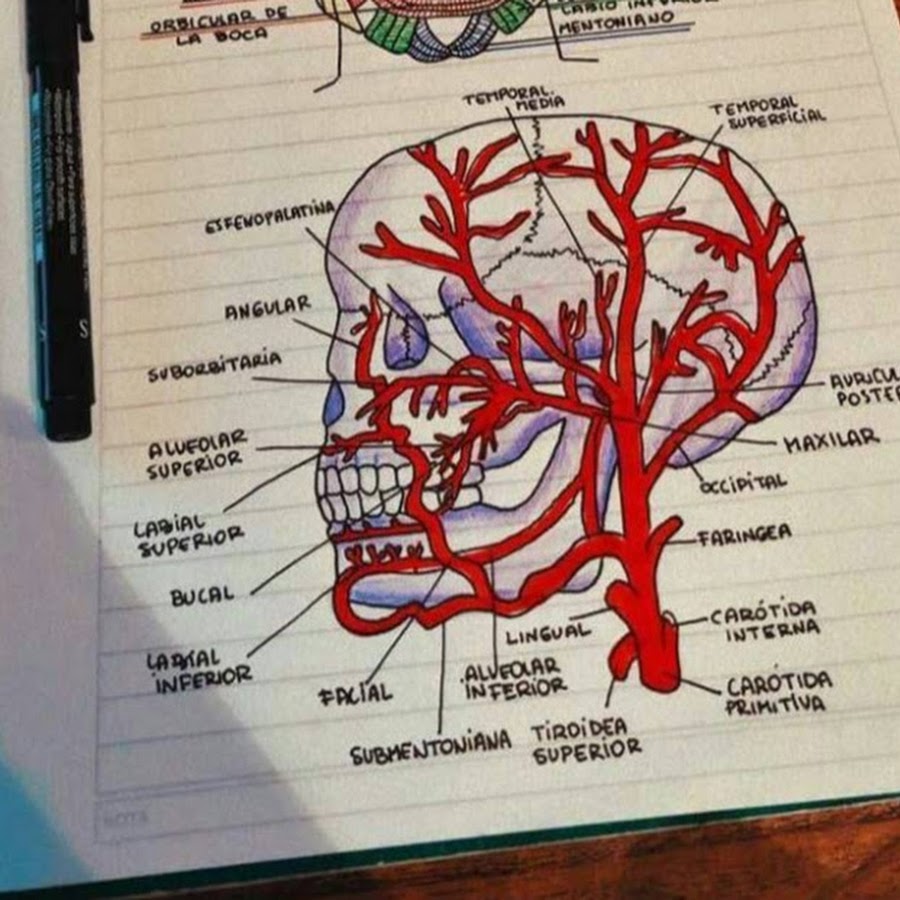 ORBICULAR DE
LA BOCA
MENTONIANO
TEMPORAL
MEDIA
TEMPORAL
SUPERFICIAL
ESFENOPALATINA
ANGULAR
SUBORBITARIA
ALVEOLAR
SUPERIOR
LABIAL
SUPERIOR
BUCAL
LABIAL
INFERIOR
FACIAL
SUBMENTONIANA
ALVEOLAR
INFERIOR
TIROIDEA
SUPERIOR
LINGUAL
CARÓTIDA
PRIMITIVA
CARÓTIDA
INTERNA
FARINGEA
OCCIPITAL
MAXILAR
AURICUL
POSTE
NOTA